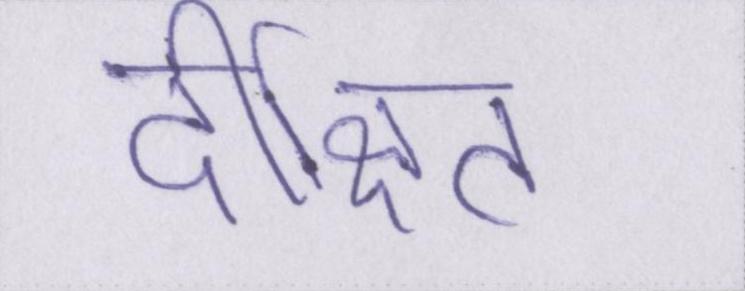 दीक्षित